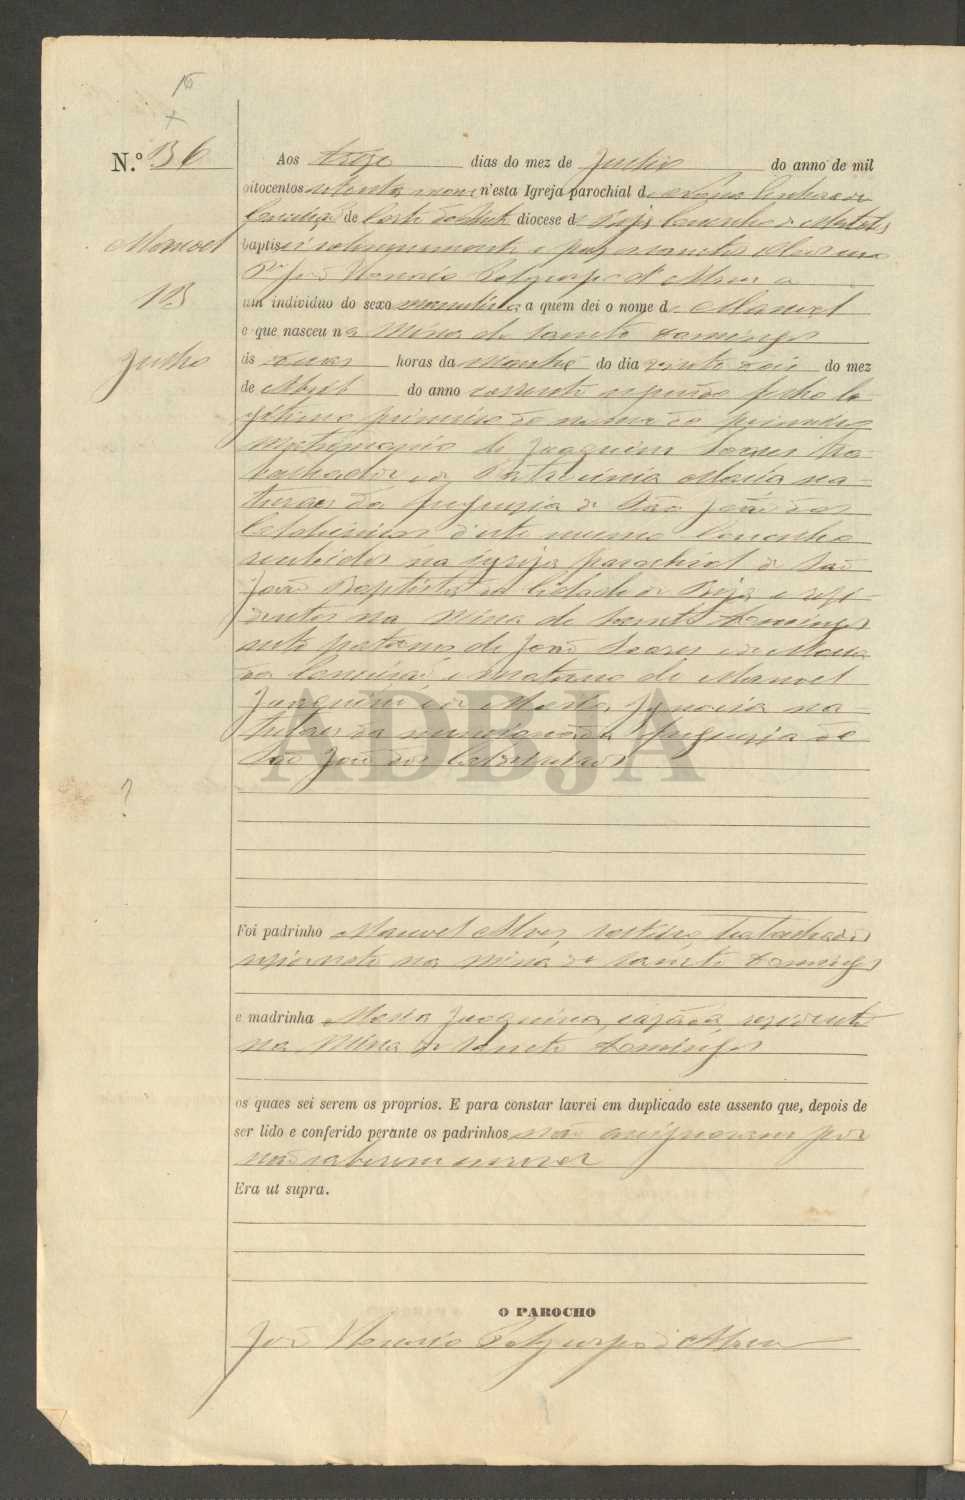 N.º 136
Manoel
13
Julho
?
Aos treze dias do mez de Julho do anno de mil
oitocentos setenta nove n'esta Igreja parochial de Nossa Senhora da
Conceição de Corte do Pinto diocese de Beja Concelho de Mertola
baptisei solemnemente e puz os sanctos oleos eu o
João Polycarpo d'
um individuo do sexo masculino a quem dei o nome de Manoel
e que nasceu na Mina de Sancto Domingos
ás duas horas da manhã do dia vinte dois do mez
de Abril do anno corrente filho le-
gitimo primeiro do nome do primeiro
matrimonio de Joaquim Soares tra-
balhador e de Patrocinia Maria na-
turaes da freguezia de São João dos
Caldeireiros d'este mesmo Concelho
recebidos na igreja parochial de São
João Baptista da Cidade de Beja e resi-
dentes na Mina de Sancto Domingos
neto paterno de João Soares e de Maria
da Conceição e materno de Manoel
Joaquim e de Maria Ignacia na-
turaes da mencionada freguezia de
São João dos Caldeireiros
ADBJA
Foi padrinho Manoel Alves, solteiro, trabalhador
residente na Mina de Sancto Domingos
e madrinha Maria Joaquina, casada, residente
na Mina de Sancto Domingos
os quaes sei serem os proprios. E para constar lavrei em duplicado este assento que, depois de
ser lido e conferido perante os padrinhos não assignaram por
não saberem escrever
Era ut supra.
O PAROCHO
João Polycarpo d'